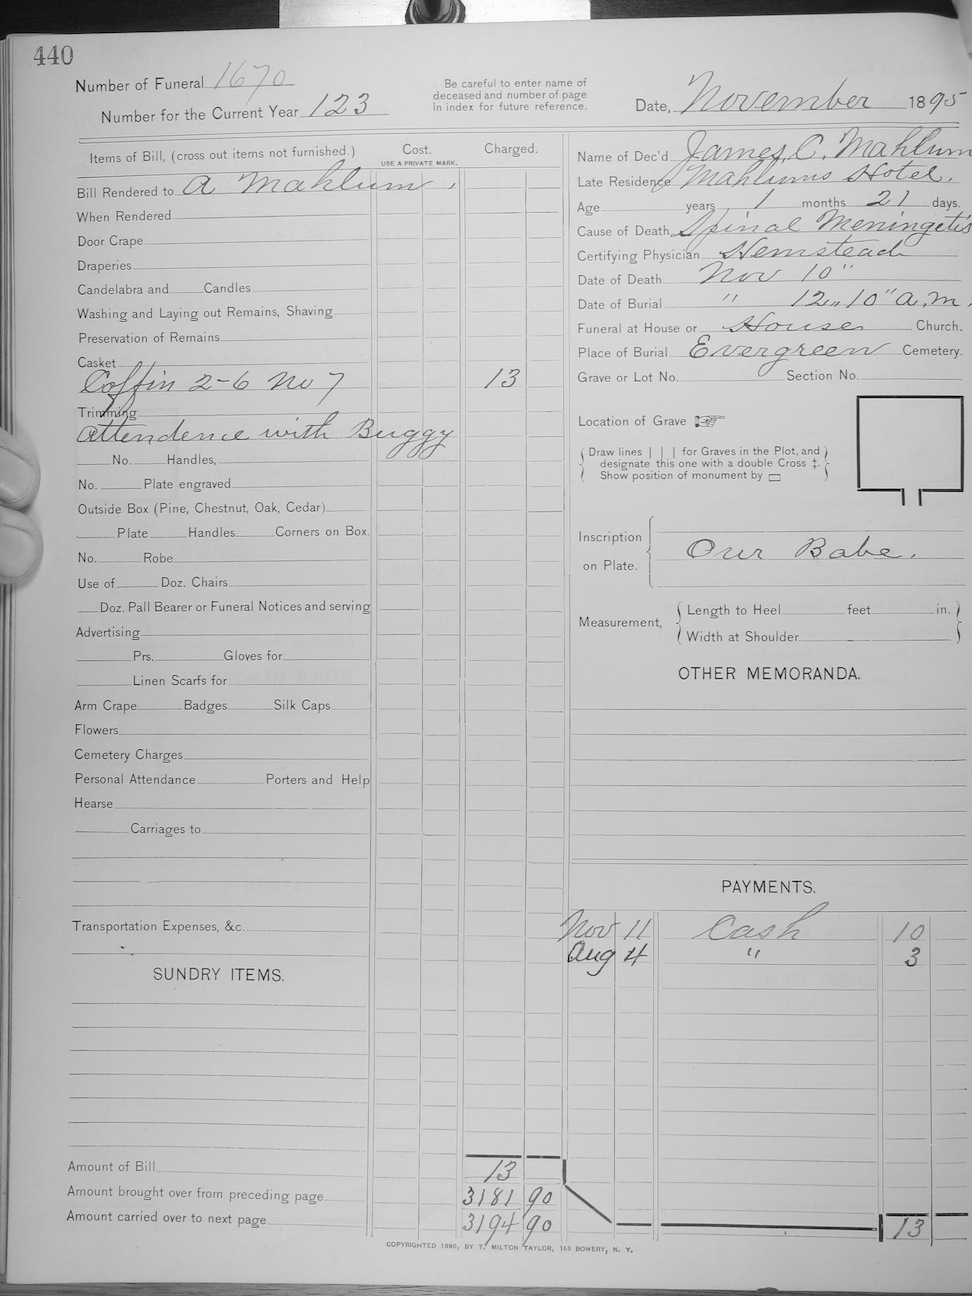 440
Number of Funeral 1670
Number for the Current Year 123
Be careful to enter name of
deceased and number of page
in index for future reference.
Date, November 1895
Items of Bill, (cross out items not furnished.)
Cost.
USE A PRIVATE MARK.
Charged.
Bill Rendered to A Mahlum.
When Rendered
Door Crape
Draperies
Candelabra and Candles
Washing and Laying out Remains, Shaving
Preservation of Remains
Casket
Coffin 2-6 No 7 13
Trimming
Attendence with Buggy
No. Handles,
No. Plate engraved
Outside Box (Pine, Chestnut, Oak, Cedar)
Plate Handles Corners on Box.
No. Robe
Use of Doz. Chairs
Doz. Pall Bearer or Funeral Notices and serving
Advertising
Prs. Gloves for
Linen Scarfs for
Arm Crape Badges Silk Caps
Flowers
Cemetery Charges
Personal Attendance Porters and Help
Hearse
Carriages to
Transportation Expenses, &c.
SUNDRY ITEMS.
Amount of Bill 13
Amount brought over from preceding page 3181 90
Amount carried over to next page 3194 90
Name of Dec'd James, C. Mahlum
Late Residence Mahlums Hotel.
Age years 1 months 21 days.
Cause of Death, Spinal Meningetis
Certifying Physician Hemstead
Date of Death Nov 10"
Date of Burial " 12,, 10" a.m.
Funeral at House or House Church.
Place of Burial Evergreen Cemetery.
Grave or Lot No. Section No.
Location of Grave
Draw lines | | | for Graves in the Plot, and
designate this one with a double Cross ‡.
Show position of monument by
Inscription
on Plate.
Our Babe.
Measurement,
Length to Heel feet in.
Width at Shoulder
OTHER MEMORANDA.
PAYMENTS.
Nov 11 Cash 10
Aug 4 " 3
13
COPYRIGHTED 1890, BY T. MILTON TAYLOR, 163 BOWERY, N. Y.